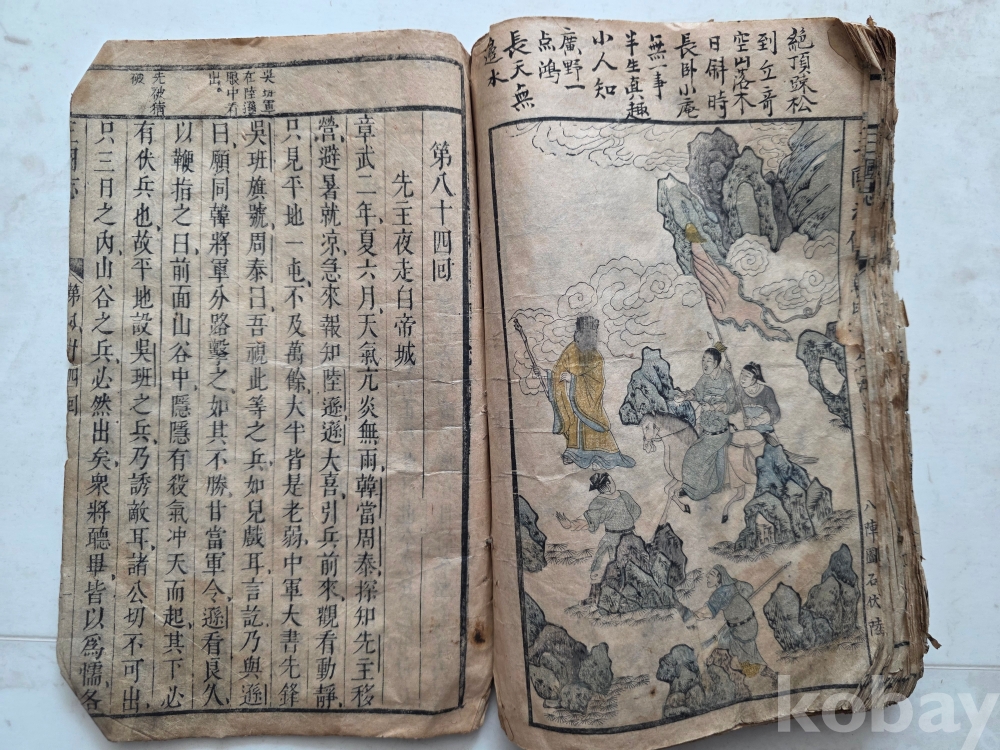 絕頂踈松
到立哥
空山落木
日時
長臥小庵
無一事
半生真趣
小人知
廣野一
点鴻
長天無
邊水
八陣圖石伏陸
吳班軍
在陸遜
眼中看
出
先欲猜
破
第八十四回
先王夜走白帝城
章武二年夏六月天氣亢炎無雨韓當周泰探知先主移
營避暑就凉急來報知陸遜遜大喜引兵前來觀看動靜
只見平地一屯不及萬餘大半皆是老弱中軍大書先鋒
吳班旗號周泰曰吾視此等之兵如兒戲耳言訖乃與遜
曰願同韓將軍分路擊之如其不勝甘當軍令遜看良久
以鞭指之曰前面山谷中隱隱有殺氣冲天而起其下必
有伏兵也故平地設吳班之兵乃誘敵耳諸公切不可出
只三日之內山谷之兵必然出矣衆將聽畢皆以爲懦各
第八十四回
kobay